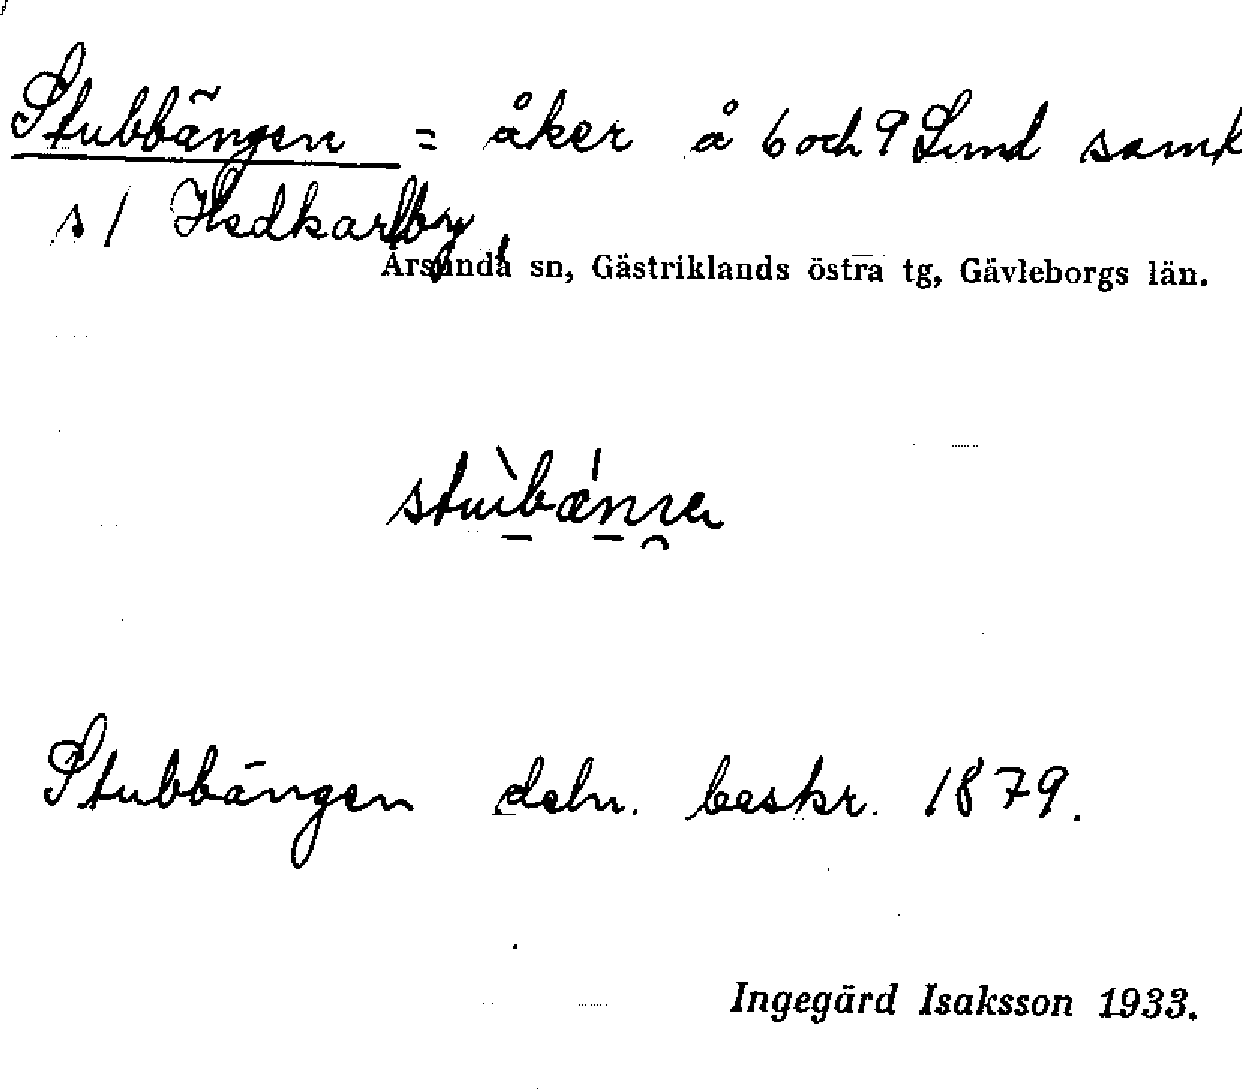 Stubbängen = åker å 6 och 9 Lund samt
s 1 Hedkarlby
Årsunda sn, Gästriklands östra tg, Gävleborgs län.
Stubbängen deln. beskr. 1879.
Ingegärd Isaksson 1933.